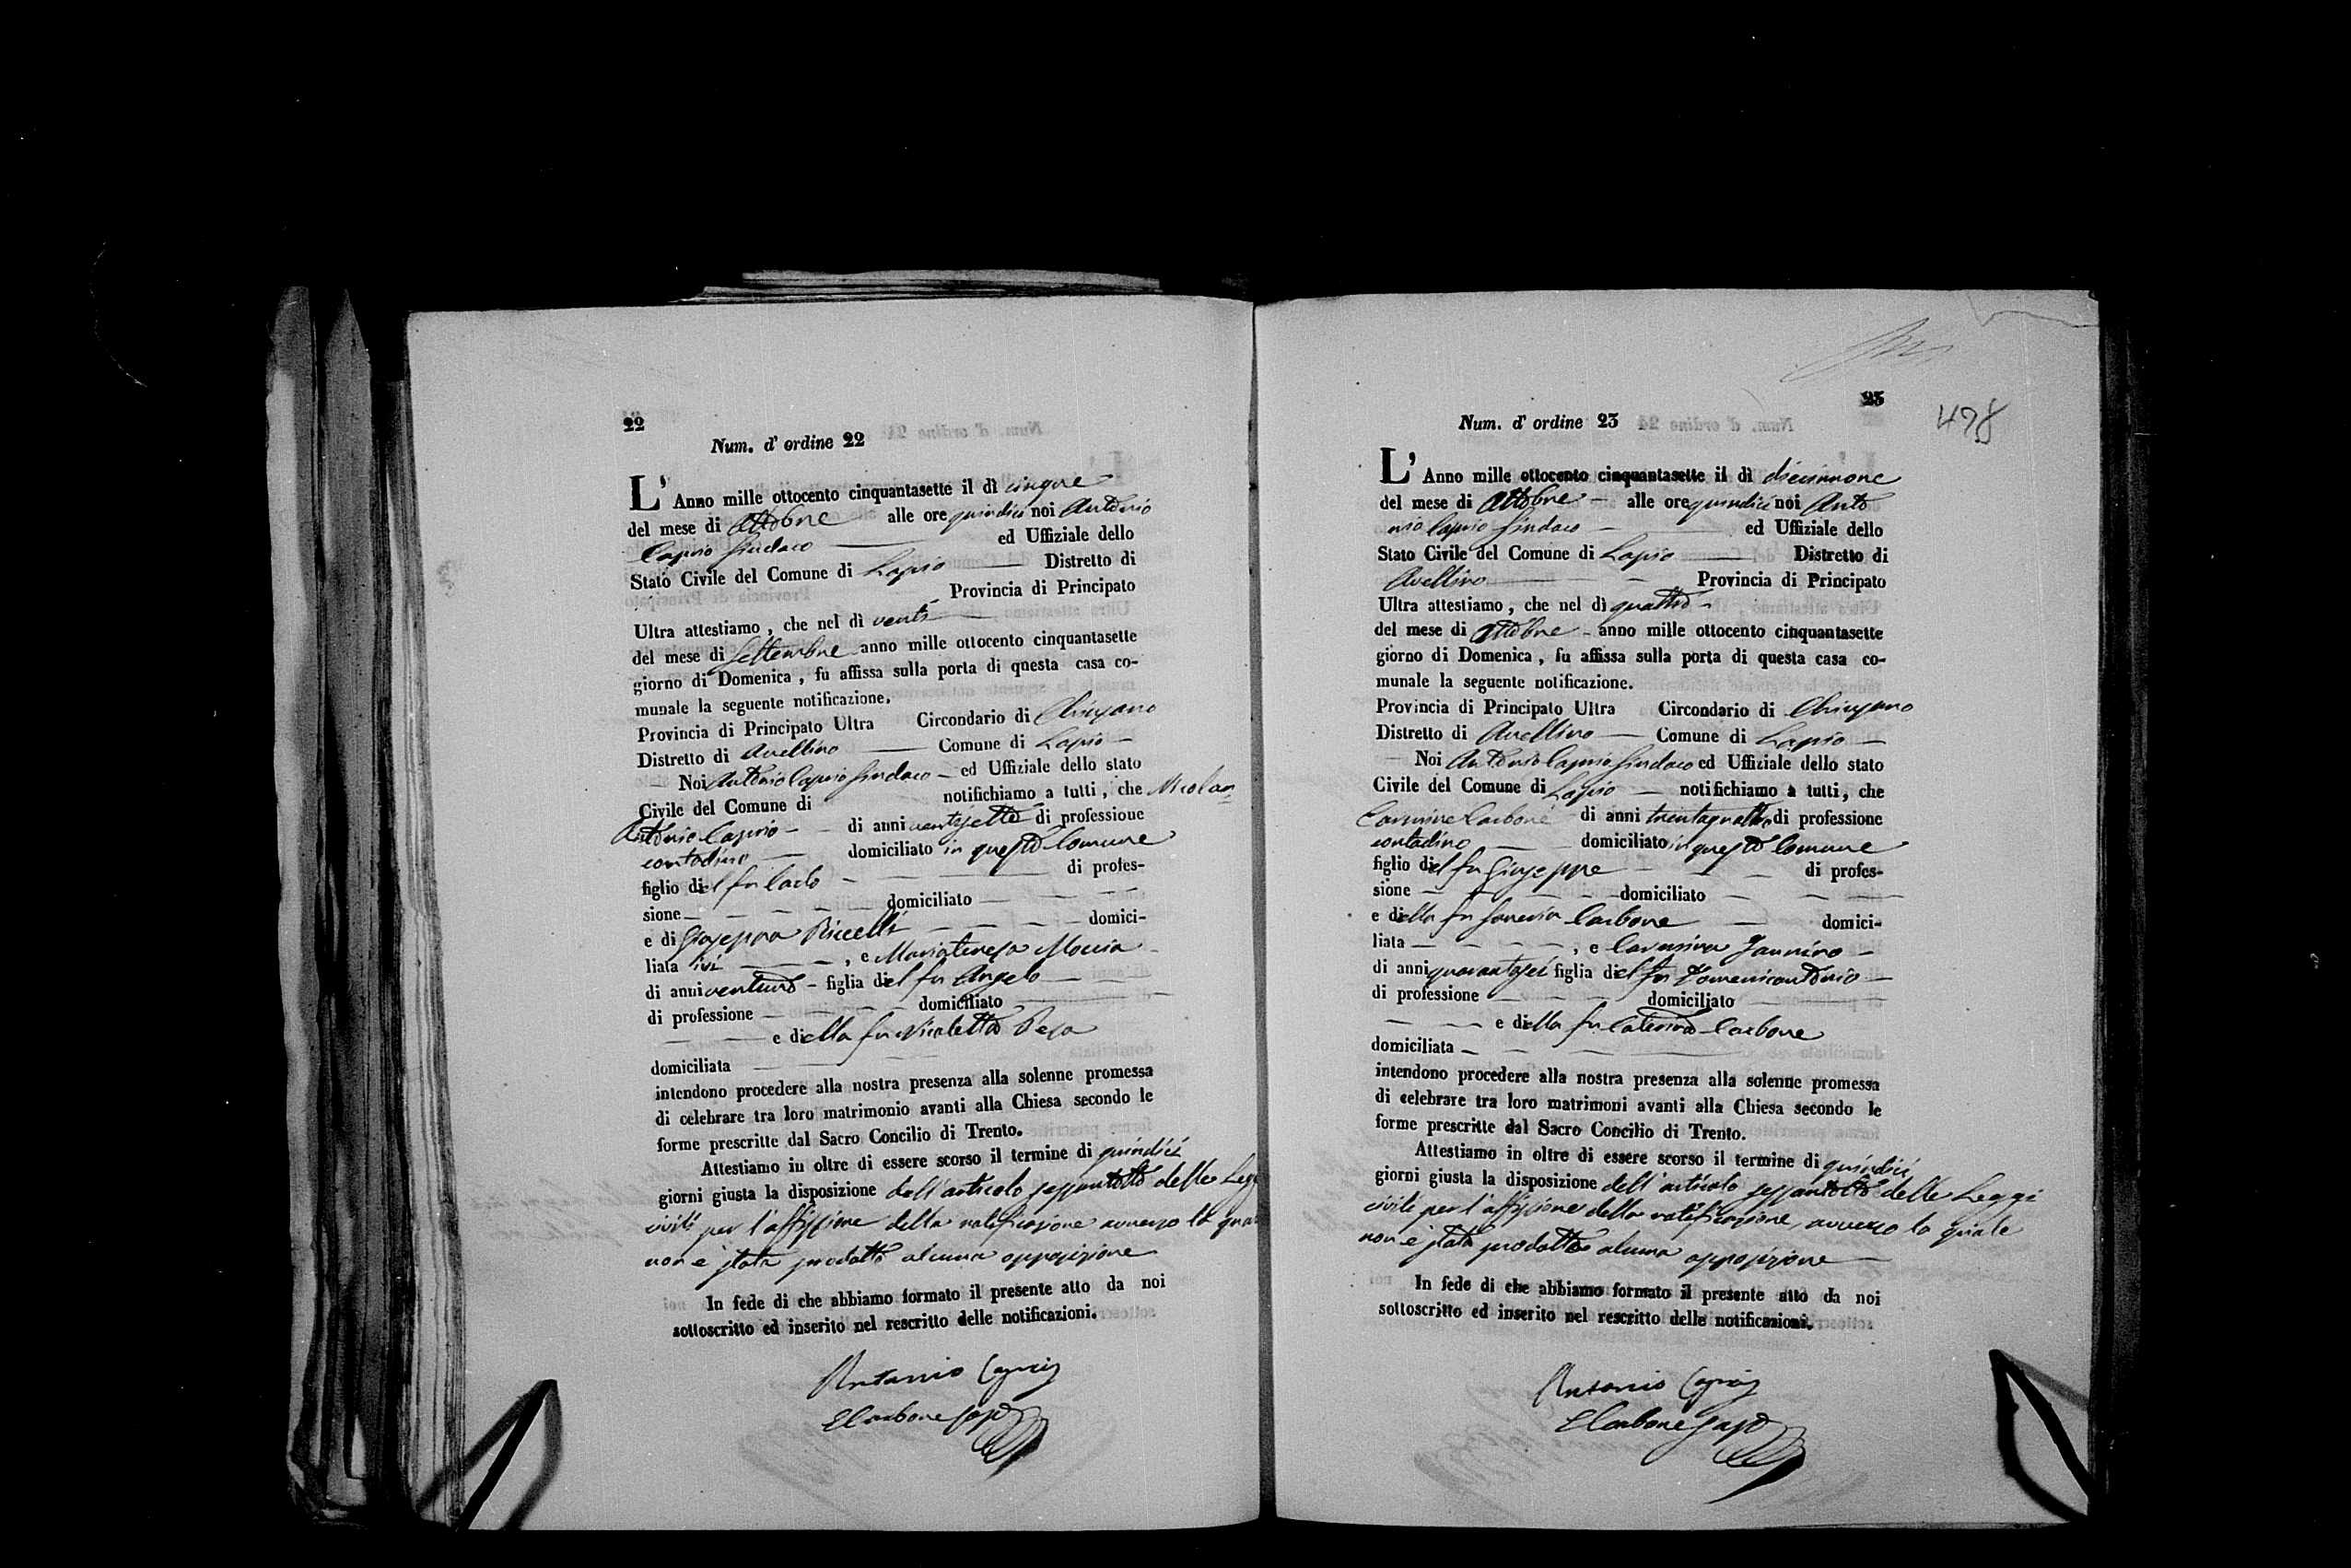 22
Num. d' ordine 22
L' Anno mille ottocento cinquantasette il dì cinque
del mese di Ottobre alle ore quindici noi Antonio
Caprio Sindaco ed Uffiziale dello
Stato Civile del Comune di Lapio Distretto di
Provincia di Principato
Ultra attestiamo, che nel dì venti
del mese di Settembre anno mille ottocento cinquantasette
giorno di Domenica, fu affissa sulla porta di questa casa co-
munale la seguente notificazione.
Provincia di Principato Ultra Circondario di Chiusano
Distretto di Avellino Comune di Lapio
Noi Antonio Caprio Sindaco ed Uffiziale dello stato
Civile del Comune di notifichiamo a tutti, che Nicolan
Antonio Caprio di anni ventisette di professione
contadino domiciliato in questo Comune
figlio del fu Carlo di profes-
sione domiciliato
e di Giuseppa Piccelli domici-
liata ivi, e Mariateresa Moccia
di anni ventuno figlia del fu Angelo
di professione domiciliato
e della fu Nicoletta Pepa
domiciliata
intendono procedere alla nostra presenza alla solenne promessa
di celebrare tra loro matrimonio avanti alla Chiesa secondo le
forme prescritte dal Sacro Concilio di Trento.
Attestiamo in oltre di essere scorso il termine di quindici
giorni giusta la disposizione dell'articolo sessantotto delle Leg
civili per l'affissione della notificazione avverso la qua
non è stata prodotta alcuna opposizione
In fede di che abbiamo formato il presente atto da noi
sottoscritto ed inserito nel rescritto delle notificazioni.
Antonio Caprio
E Carbone
23
498
Num. d' ordine 23
L' Anno mille ottocento cinquantasette il dì diciannove
del mese di Ottobre alle ore quindici noi Anto
nio Caprio Sindaco ed Uffiziale dello
Stato Civile del Comune di Lapio Distretto di
Avellino Provincia di Principato
Ultra attestiamo, che nel dì quattro
del mese di Ottobre anno mille ottocento cinquantasette
giorno di Domenica, fu affissa sulla porta di questa casa co-
munale la seguente notificazione.
Provincia di Principato Ultra Circondario di Chiusano
Distretto di Avellino Comune di Lapio
Noi Antonio Caprio Sindaco ed Uffiziale dello stato
Civile del Comune di Lapio notifichiamo a tutti, che
Carmine Carbone di anni trentaquattro di professione
contadino domiciliato in questo Comune
figlio del fu Giuseppe di profes-
sione domiciliato
e della fu Saveria Carbone domici-
liata, e Carmina Jannino
di anni quarantasei figlia del fu Domenicantonio
di professione domiciliato
e della fu Caterina Carbone
domiciliata
intendono procedere alla nostra presenza alla solenne promessa
di celebrare tra loro matrimoni avanti alla Chiesa secondo le
forme prescritte dal Sacro Concilio di Trento.
Attestiamo in oltre di essere scorso il termine di quindici
giorni giusta la disposizione dell'articolo sessantotto delle Leggi
civili per l'affissione della notificazione, avverso la quale
non è stata prodotta alcuna opposizione
In fede di che abbiamo formato il presente atto da noi
sottoscritto ed inserito nel rescritto delle notificazioni.
Antonio Caprio
E Carbone